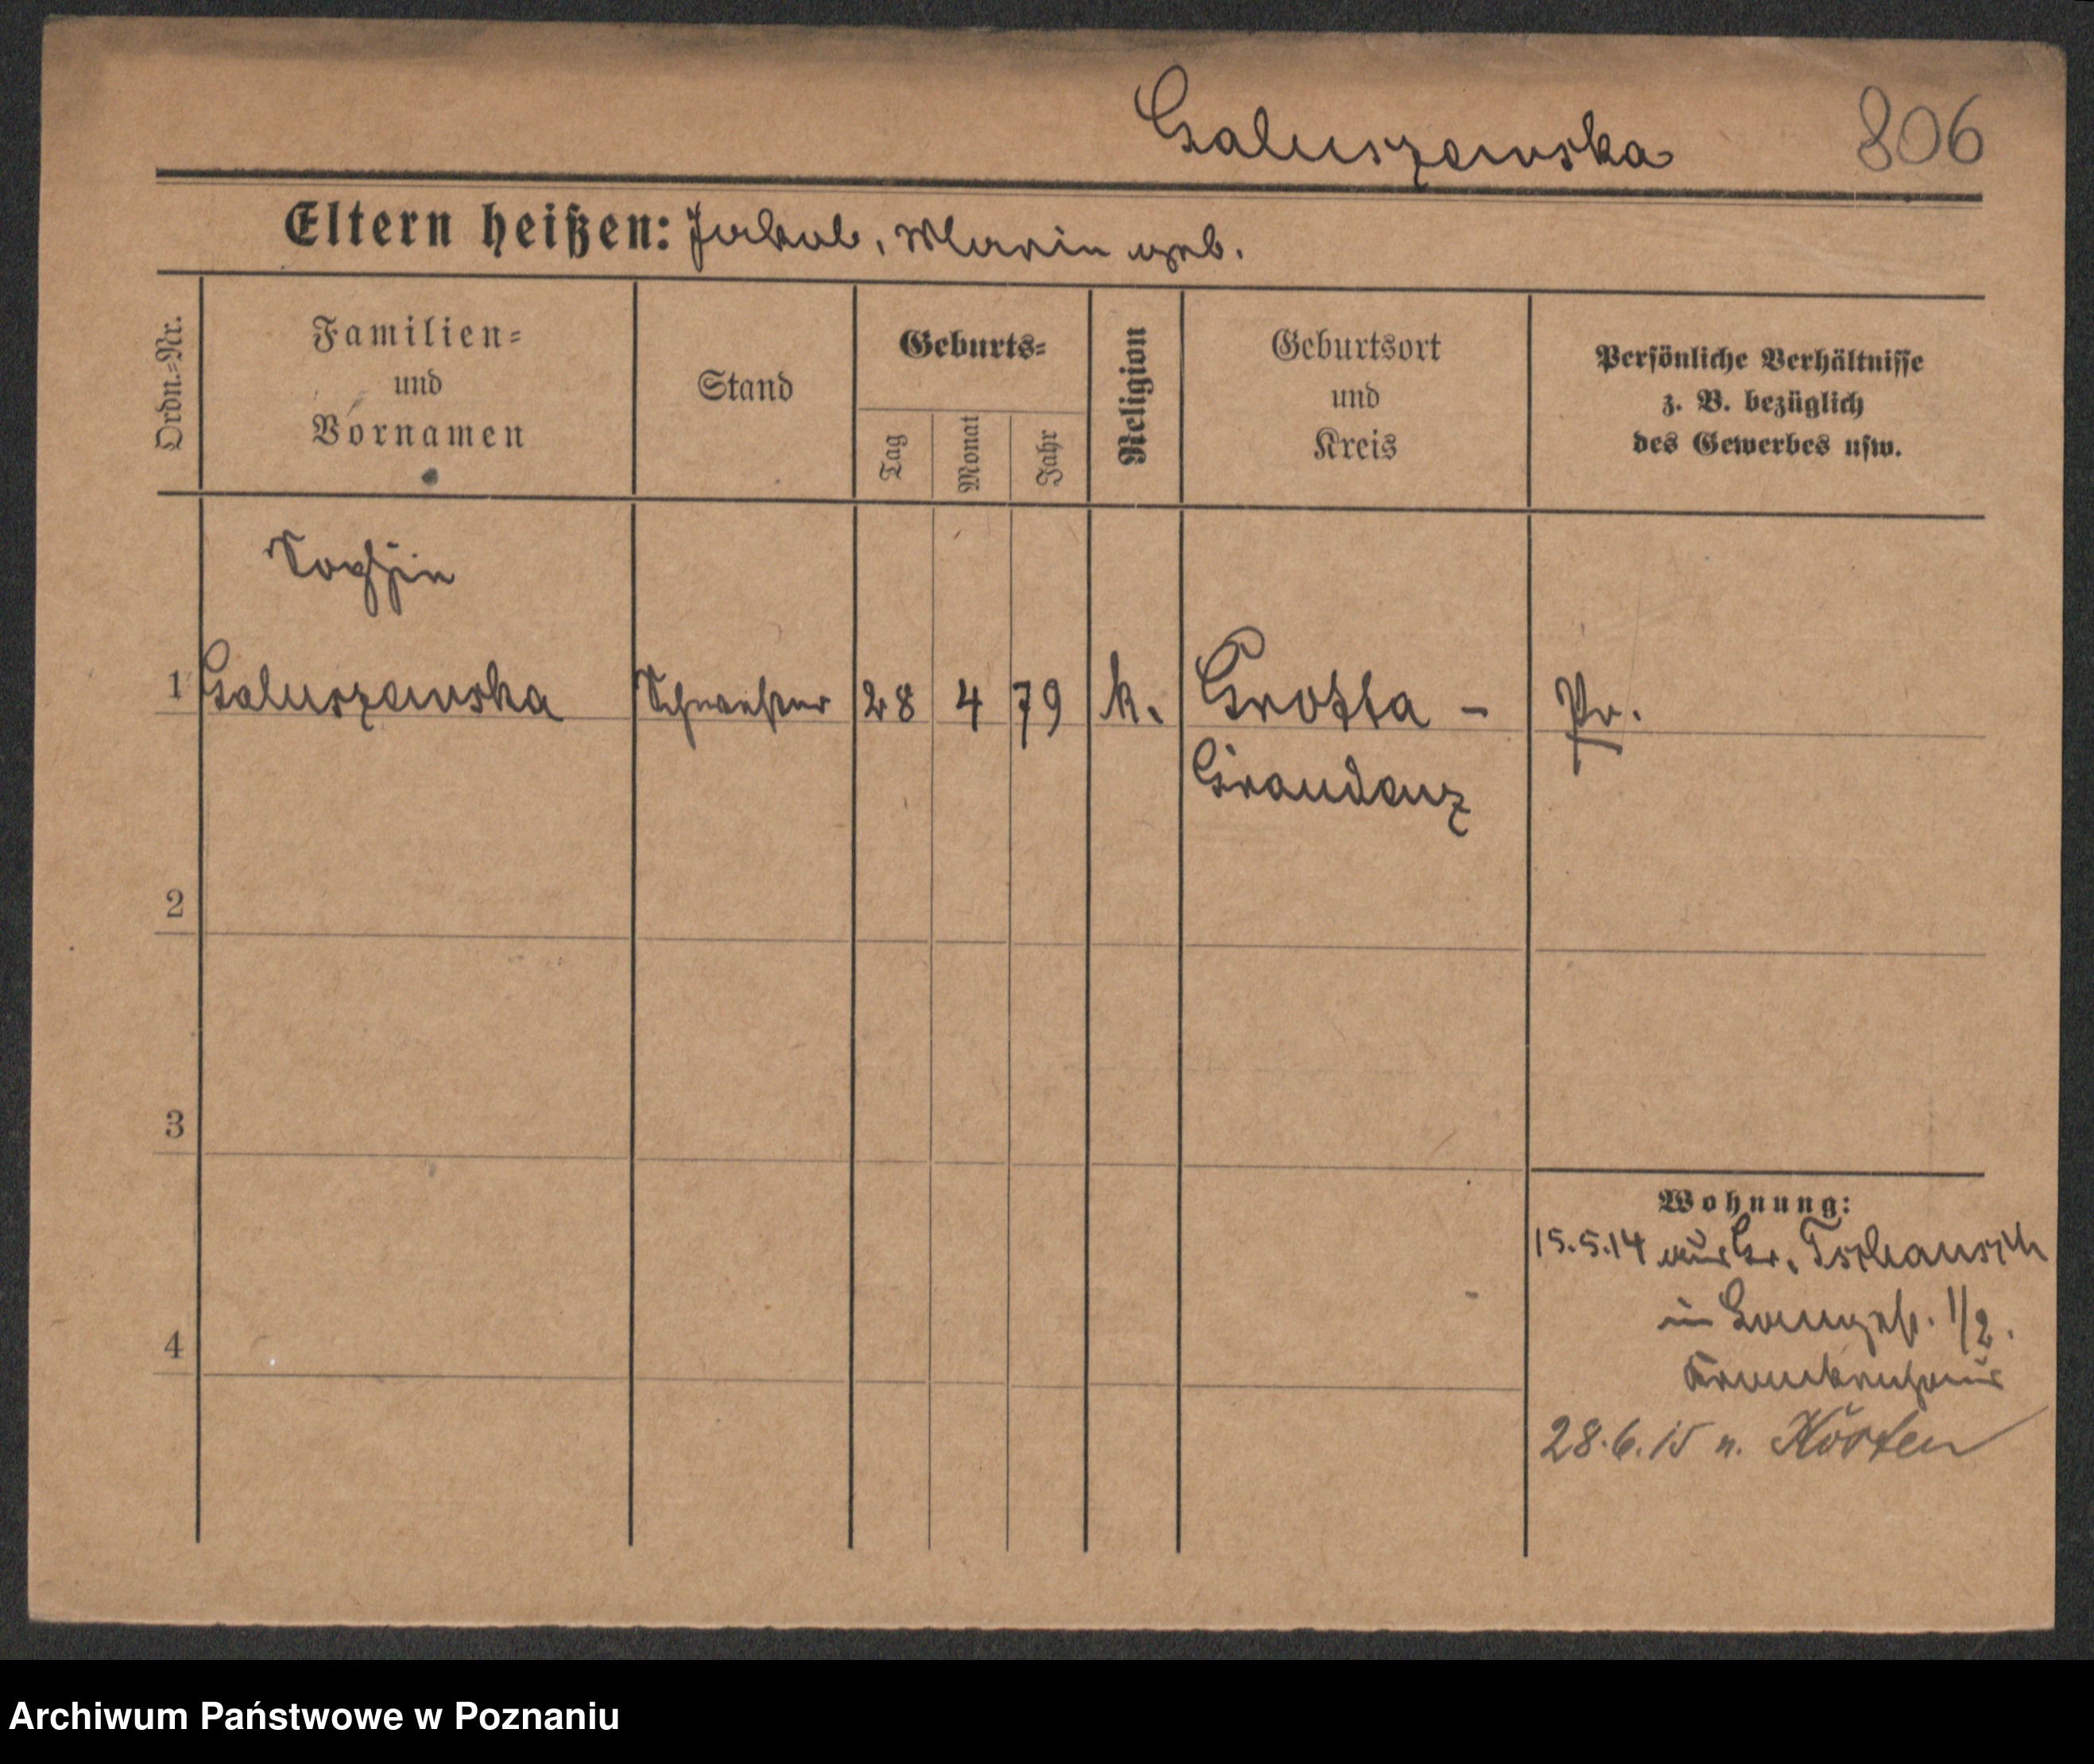 Galuszewska 806
Eltern heißen: Jakob, Marie geb.
Ordn.-Nr.
Familien-
und
Vornamen
Stand
Geburts-
Tag
Monat
Jahr
Religion
Geburtsort
und
Kreis
Persönliche Verhältnisse
z. B. bezüglich
des Gewerbes usw.
Sophie
1 Galuszewska Schwester 28 4 79 k. Grotta - Pr.
Graudenz
2
3
4
Wohnung:
15.5.14 aus Gr. Tschansch
in Langest. 1/2.
Krankenhaus
28.6.15 n. Kosten
Archiwum Państwowe w Poznaniu